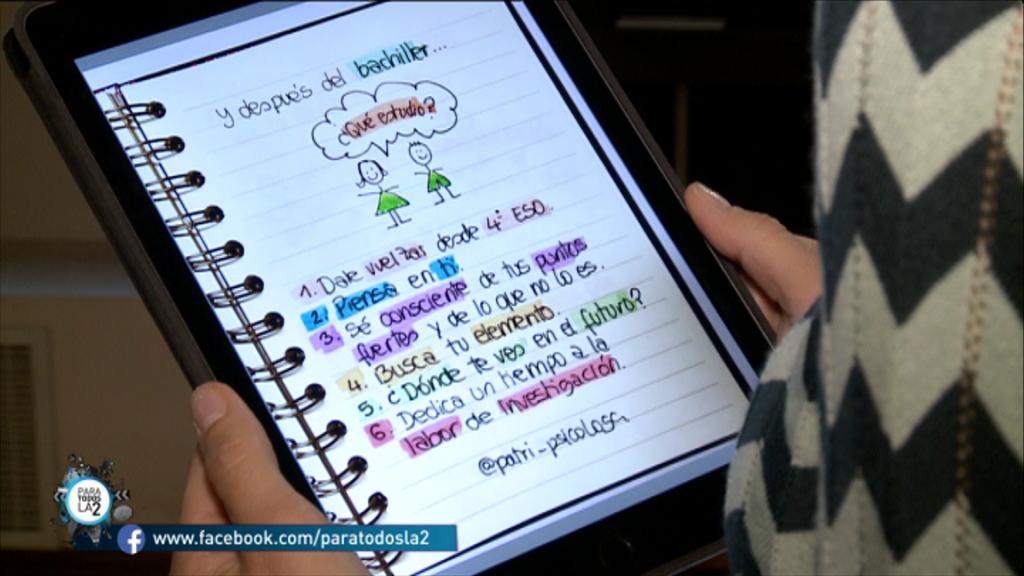 y después del bachiller...
Qué estudio?
1. Date vuelzar desde 4º ESO.
2. Piensa en ti.
3. Sé consciente de tus puntos
fuertes y de lo que no lo es.
4. Busca tu elemento.
5. ¿Dónde te ves en el futuro?
6. Dedica un tiempo a la
labor de investigación.
@patri_psicologa
PARA
TODOS
LA2
f www.facebook.com/paratodosla2